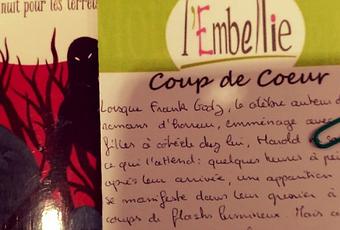 nuit pour les terreu
l'Embellie
Coup de Coeur
Lorsque Frank Gody, le célèbre auteur d
romans d'horreur, emménage avec
filles à côté de chez lui, Harold
ce qui l'attend : quelques heures à pei
après leur arrivée, une apparition
se manifeste dans leur grenier à
coups de flashs lumineux. Mais ce